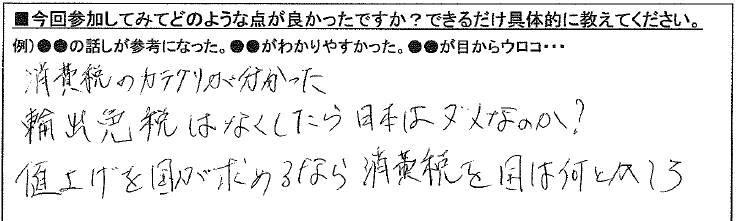 ■今回参加してみてどのような点が良かったですか？できるだけ具体的に教えてください。
例）●●の話しが参考になった。●●がわかりやすかった。●●が目からウロコ・・・
消費税のカラクリが分かった
輸出免税はなくしたら日本はダメなのか？
値上げを国が求めるなら消費税を国は何とかしろ